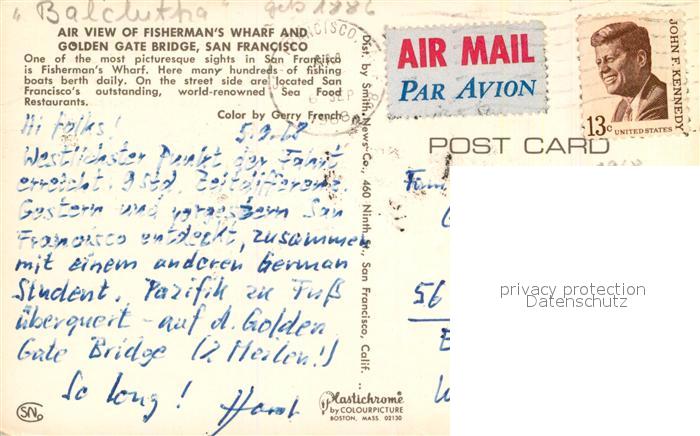 "Balclutha" geb 1886
AIR VIEW OF FISHERMAN'S WHARF AND
GOLDEN GATE BRIDGE, SAN FRANCISCO
One of the most picturesque sights in San Francisco
is Fisherman's Wharf. Here many hundreds of fishing
boats berth daily. On the street side are located San
Francisco's outstanding, world-renowned Sea Food
Restaurants.
Color by Gerry French
Hi folks! 5.9.68
Westlichster Punkt der Fahrt
erreicht. 9 Std. Zeitdifferenz.
Gestern und vorgestern San
Francisco entdeckt, zusammen
mit einem anderen German
Student. Pazifik zu Fuß
überquert - auf d. Golden
Gate Bridge (2 Meilen!)
So long!
SN
Dist. by Smith News Co., 460 Ninth St., San Francisco, Calif.
Plastichrome®
by COLOURPICTURE
BOSTON, MASS. 02130
SEP
AIR MAIL
PAR AVION
JOHN F. KENNEDY
13c UNITED STATES
POST CARD
Fam
56
privacy protection
Datenschutz